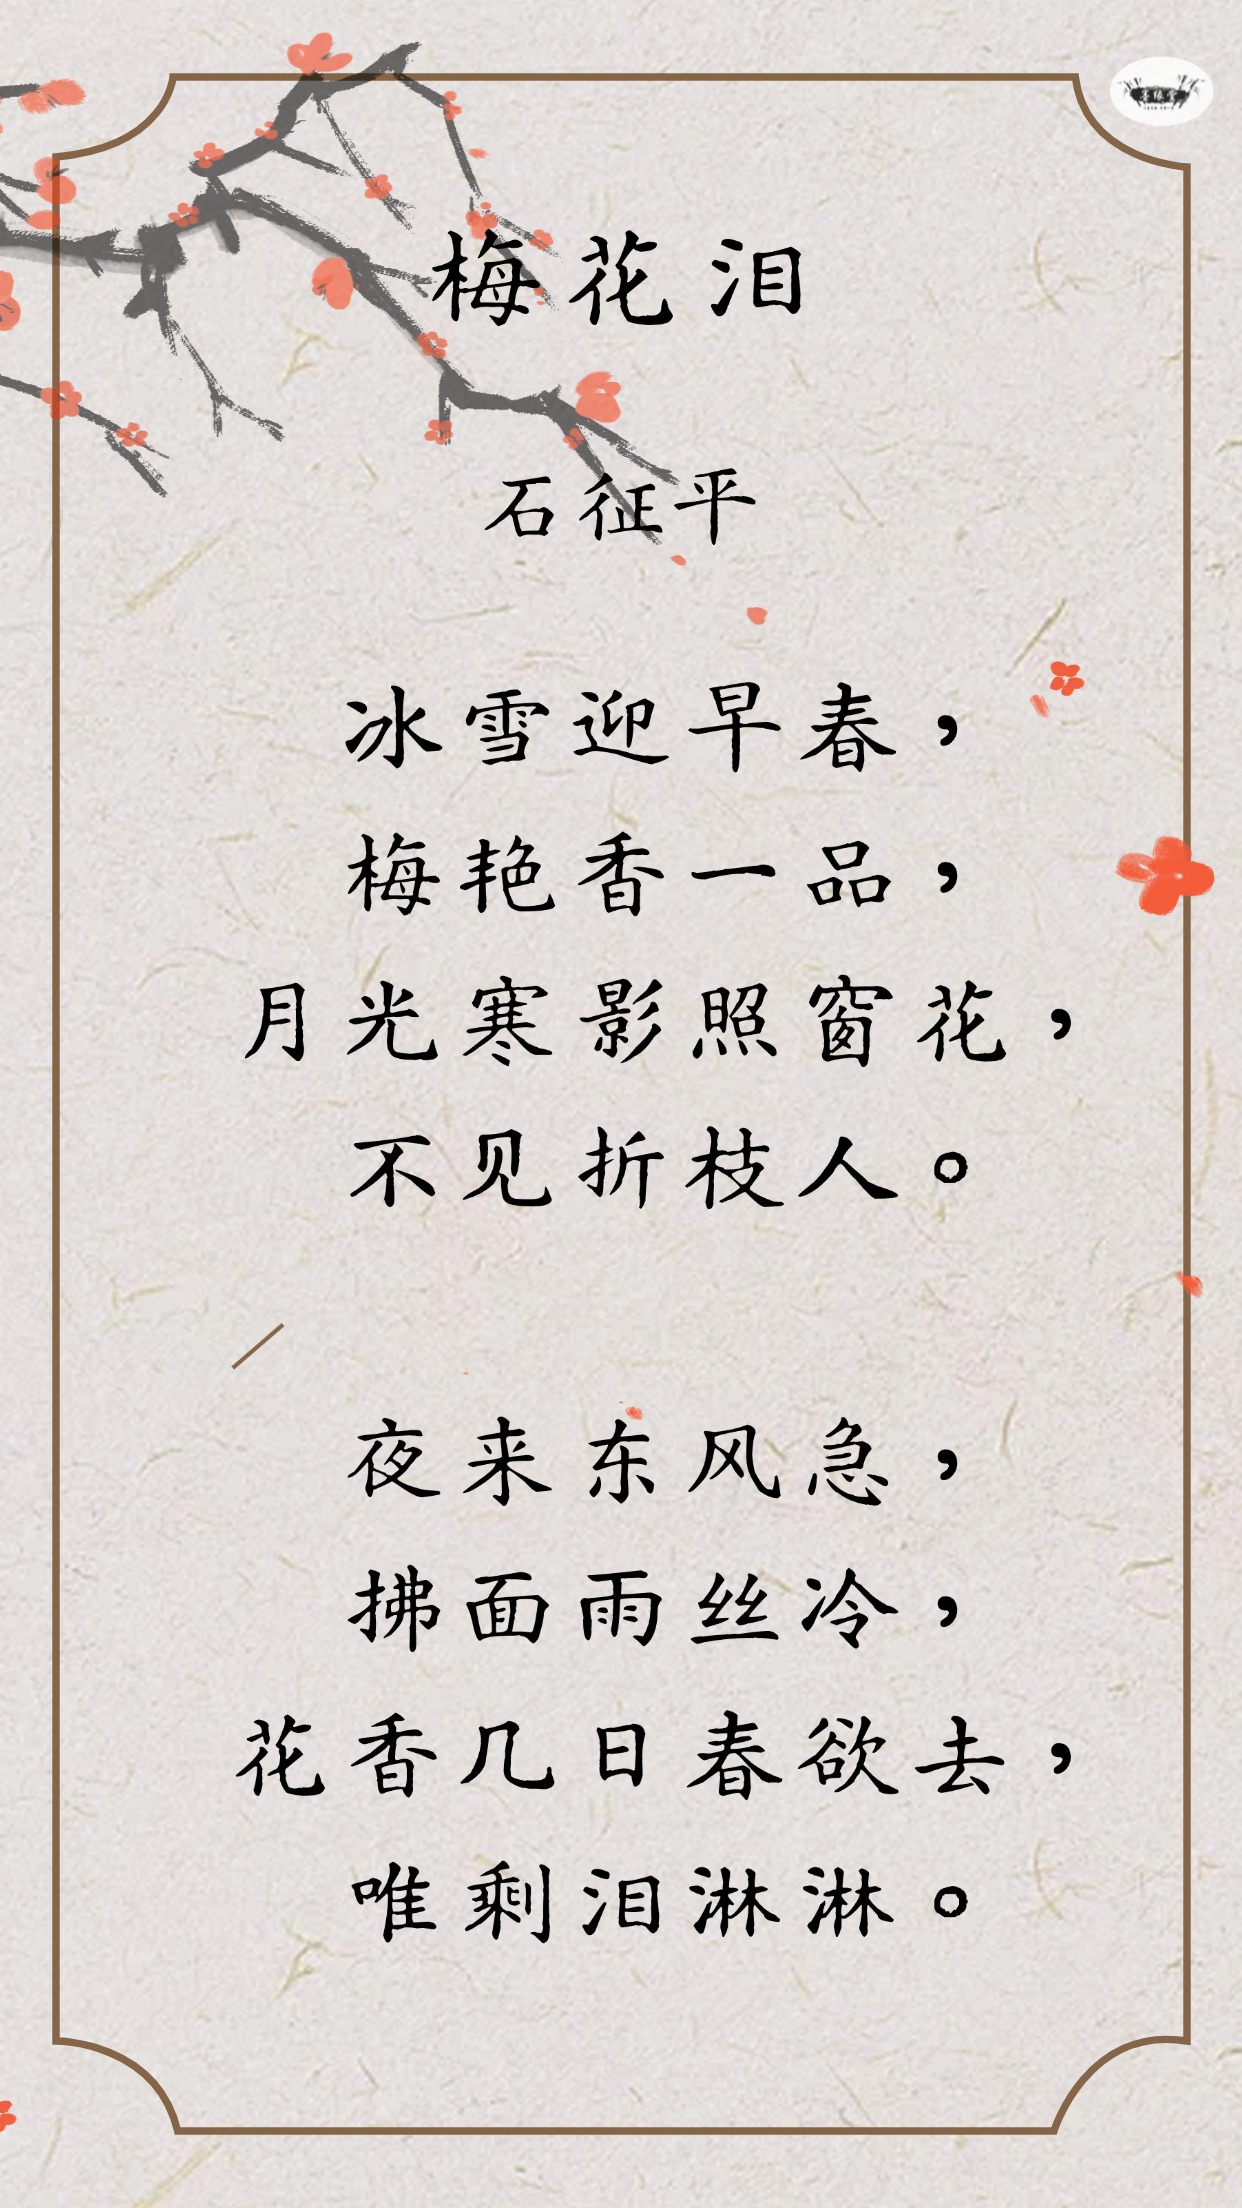 梅花泪
石征平
冰雪迎早春，
梅艳香一品，
月光寒影照窗花，
不见折枝人。
夜来东风急，
拂面雨丝冷，
花香几日春欲去，
唯剩泪淋淋。